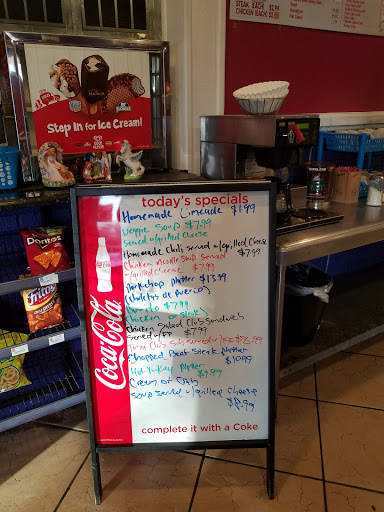 STEAK (EACH) $2.99
CHICKEN (EACH) $2
Step in for Ice Cream!
Doritos
Fritos
Coca-Cola
today's specials
Homemade Limeade $1.99
Veggie Soup $7.99
Served w/grilled cheese
Homemade Chili served w/grilled cheese
$7.99
Chicken Noodle Soup Served
w/grilled cheese $7.99
Porkchop Platter $13.99
(Chuletas de Puerco)
Burrito $7.99
Chicken or Steak
Chicken Salad Club Sandwich
Served w/FF $7.99
Tuna Club Sub served w/FF
Chopped Beef Steak Platter
$10.99
Hot Turkey Platter
$9.99
Cream of Crab
Soup served w/grilled cheese
$8.99
complete it with a Coke